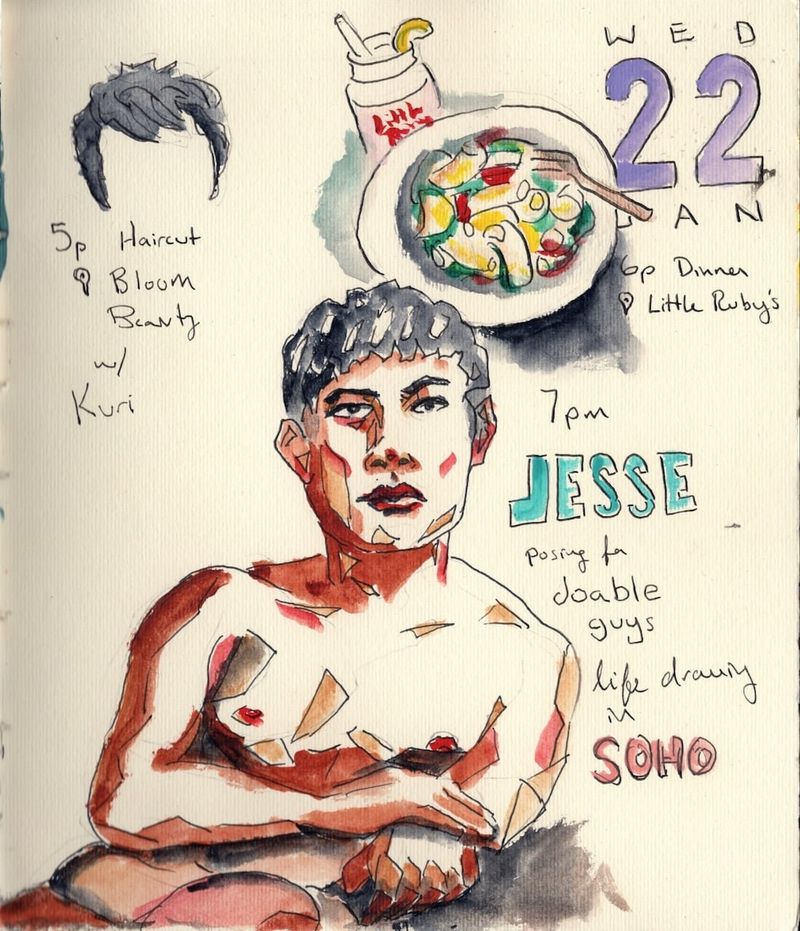 WED
22
JAN
Little
Ruby's
5p Haircut
Bloom
Beauty
w/
Kuri
6p Dinner
Little Ruby's
7pm
JESSE
posing for
doable
guys
life drawing
in
SOHO